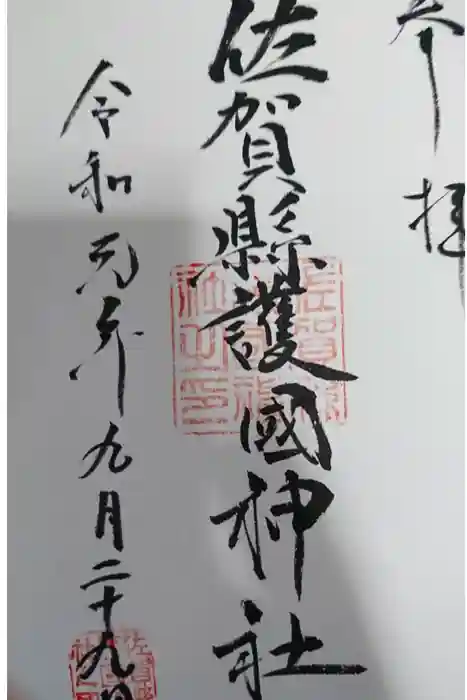 奉拝
佐賀縣護國神社
令和元年九月二十九日